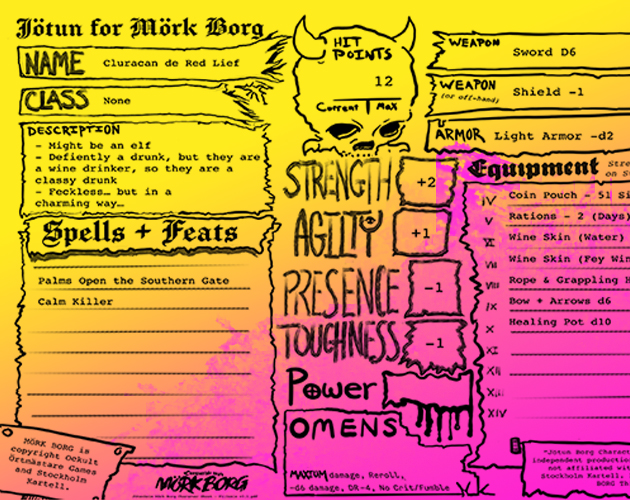 Jötun for Mörk Borg
NAME Cluracan de Red Lief
CLASS None
DESCRIPTION
- Might be an elf
- Defiently a drunk, but they are
a wine drinker, so they are a
classy drunk
- Feckless… but in a
charming way…
Spells + Feats
Palms Open the Southern Gate
Calm Killer
MÖRK BORG is
copyright Ockult
Örtmästare Games
and Stockholm
Kartell.
MÖRK BORG
HIT
POINTS
12
Current Max
STRENGTH +2
AGILITY +1
PRESENCE -1
TOUGHNESS -1
Power
OMENS
MAXIMUM damage, Reroll,
-d6 damage, DR-4, No Crit/Fumble
WEAPON Sword D6
WEAPON Shield -1
(or off-hand)
ARMOR Light Armor -d2
Equipment
IV Coin Pouch - 51
V Rations - 2 (Days)
VI Wine Skin (Water)
VII Wine Skin (Fey
VIII Rope & Grappling
IX Bow + Arrows d6
X Healing Pot d10
XI
XII
XIII
XIV
"Jötun Borg
independent
not affiliated
Stockholm
BORG